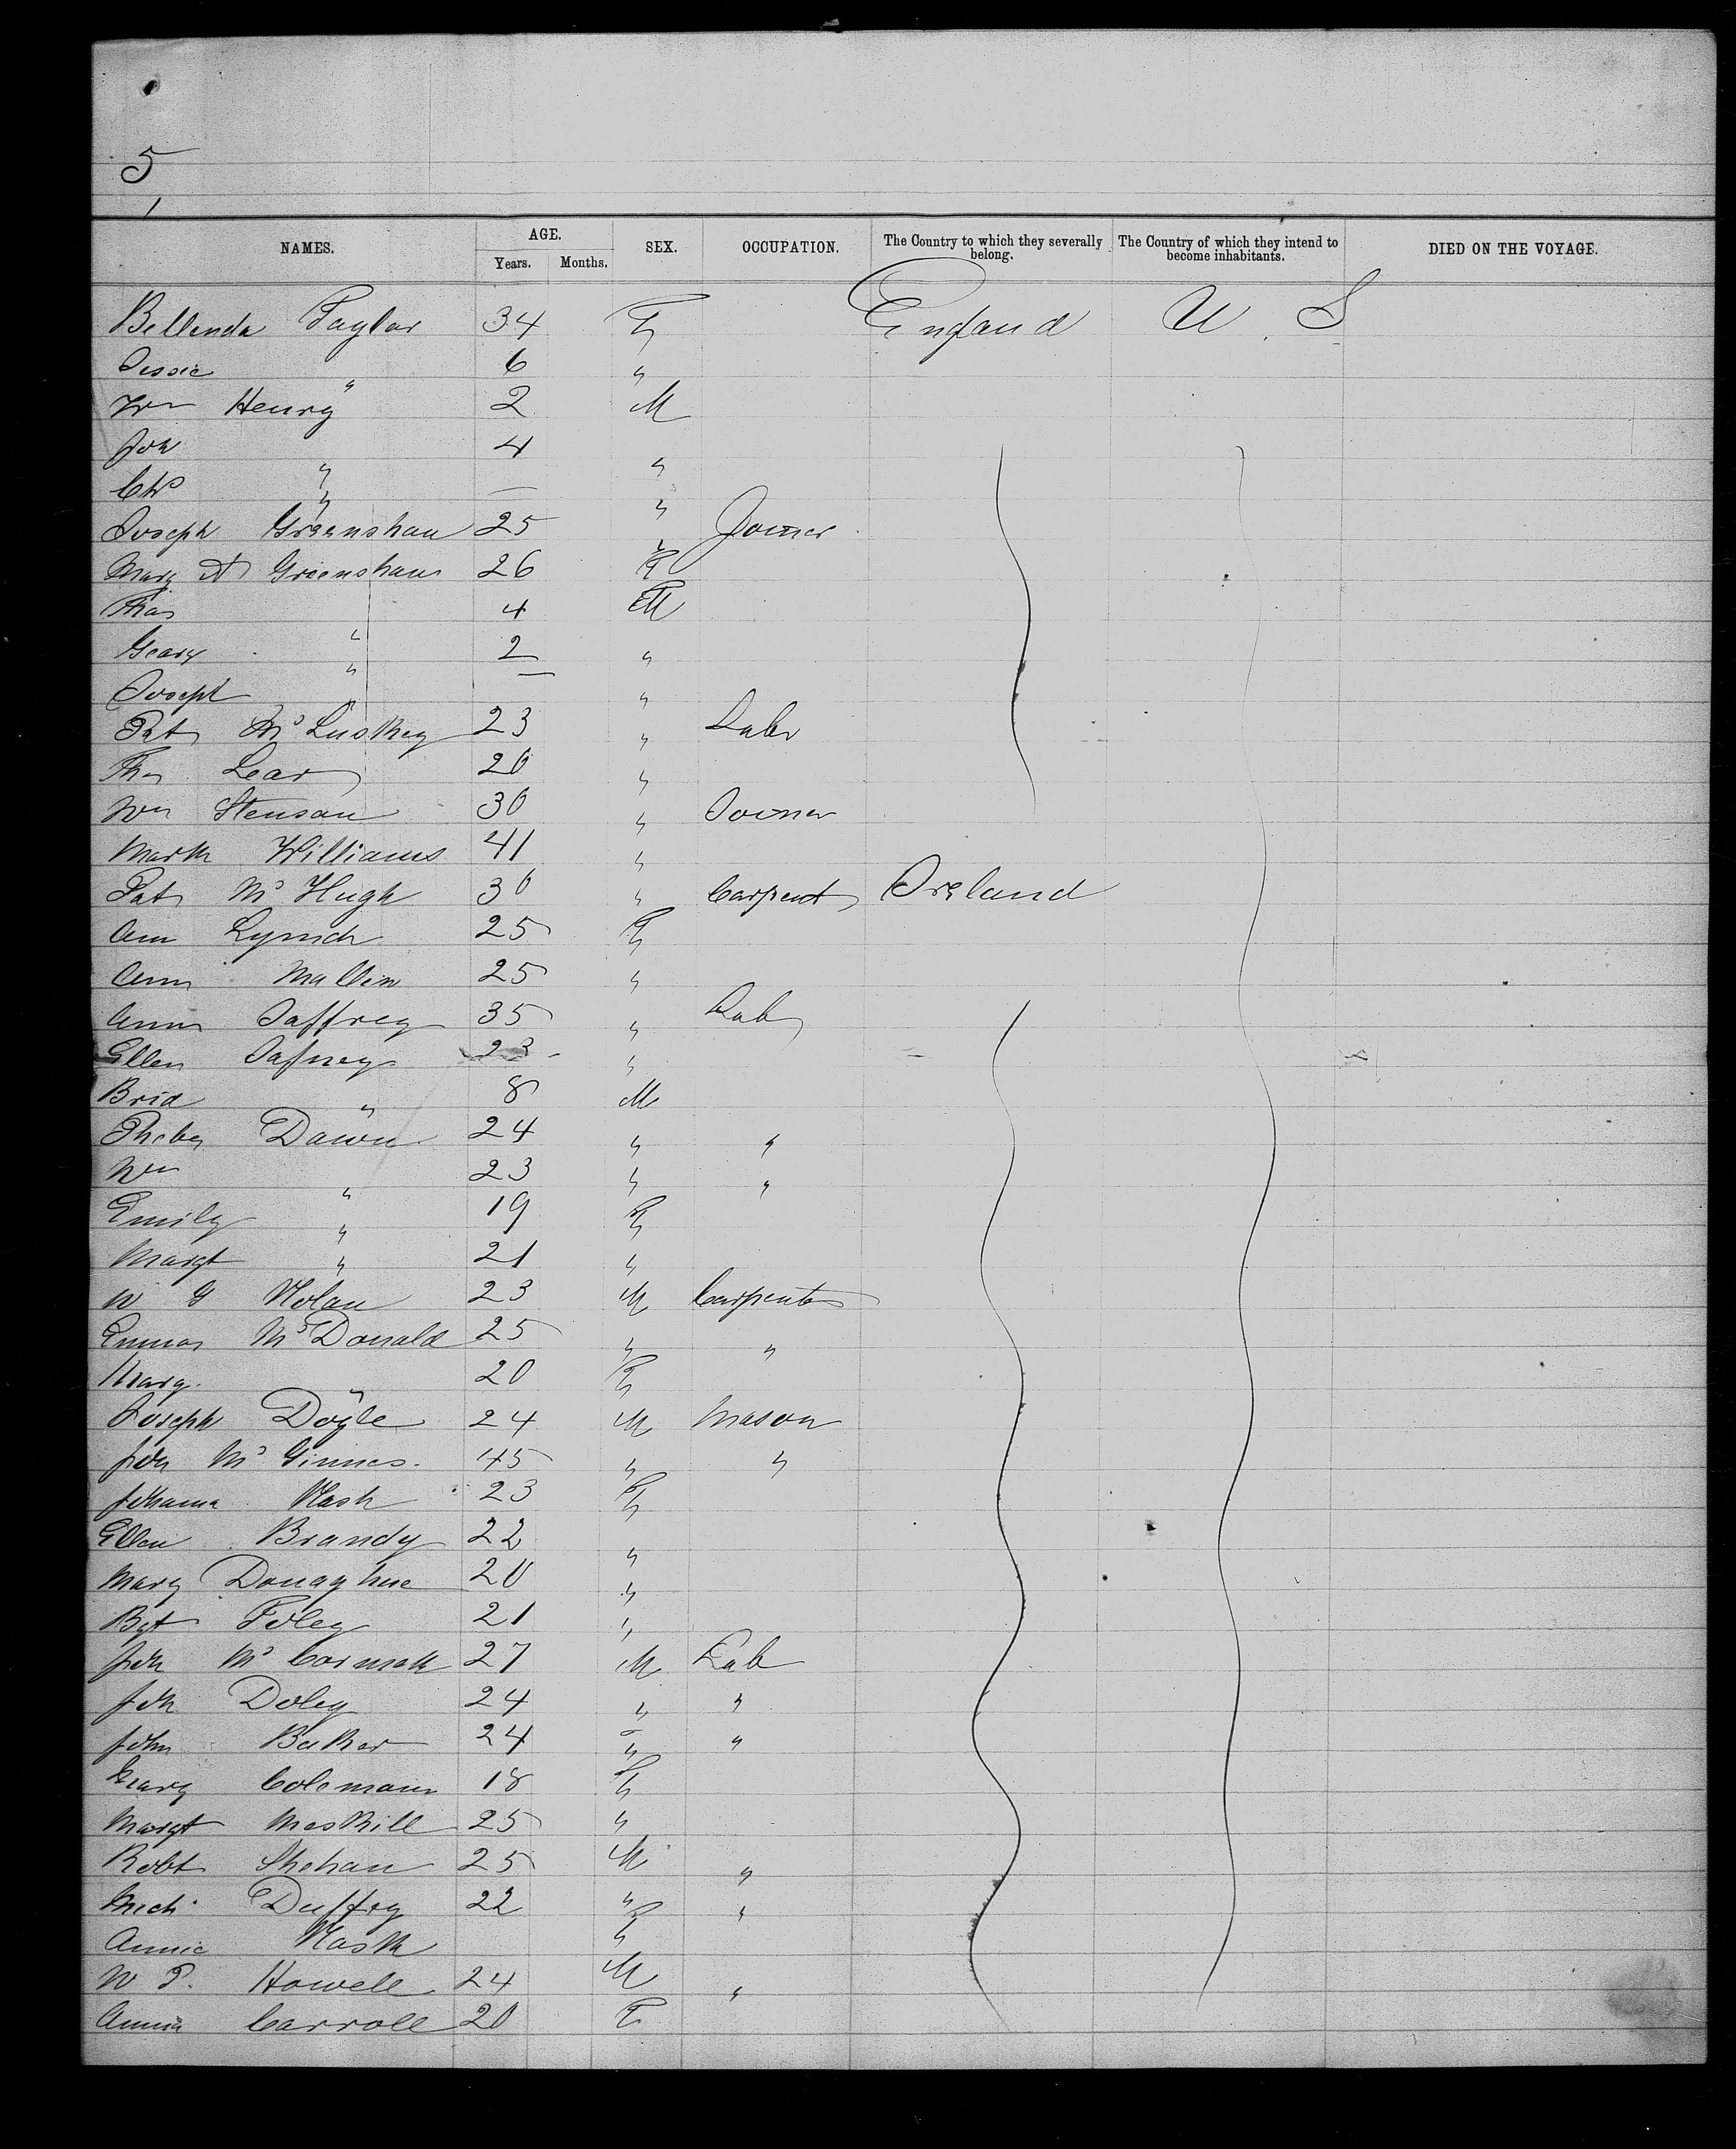 5
NAMES. AGE. Years. Months. SEX. OCCUPATION. The Country to which they severally belong. The Country of which they intend to become inhabitants. DIED ON THE VOYAGE.
Bellenda Taylor 34 F England U. S
Jessie " 6 "
Wm Henry " 2 M
Joh " 4 "
Chs " — "
Joseph Greenshau 25 " Joiner
Mary A Greenshau 26 F
Thos " 4 M
Geary " 2 "
Joseph " — "
Pat McLuskey 23 " Labr
Thos Lear 20 "
Wm Stenson 30 " Joiner
Mark Williams 41 "
Pat McHugh 30 " Carpent Ireland
Ann Lynch 25 F
Ann Mallin 25 "
Ann Jaffrey 35 " Lab
Ellen Jafney 23 "
Brid " 8 M
Pheby Dawn 24 " "
Wm " 23 " "
Emily " 19 F
Margt " 21 "
W G Nolan 23 M Carpenter
Emma McDonald 25 " "
Mary " 20 F
Joseph Doyle 24 M Mason
Joh McGinnes. 45 " "
Johanna Nash 23 F
Ellen Brandy 22 "
Mary Donaghue 20 "
Bgt Foley 21 "
Joh McCormak 27 M Lab
Joh Doley 24 " "
John Baker 24 " "
Mary Colemann 18 F
Margt Meskill 25 "
Robt Shehan 25 M "
Mich. Duffey 22 " "
Annie Nash F
W P. Howell 24 M "
Annie Carroll 20 F